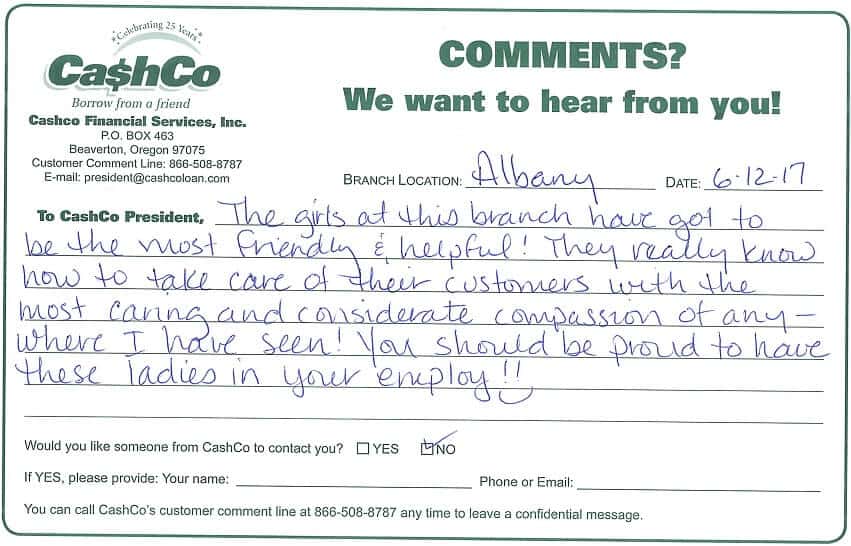 Celebrating 25 Years
Ca$hCo
Borrow from a friend
Cashco Financial Services, Inc.
P.O. BOX 463
Beaverton, Oregon 97075
Customer Comment Line: 866-508-8787
E-mail: president@cashcoloan.com
COMMENTS?
We want to hear from you!
BRANCH LOCATION: Albany DATE: 6-12-17
TO CASHCO PRESIDENT, The girls at this branch have got to
be the most friendly & helpful! They really know
how to take care of their customers with the
most caring and considerate compassion of any-
where I have seen! You should be proud to have
these ladies in your employ!!
Would you like someone from CashCo to contact you? ☐ YES ☑ NO
If YES, please provide: Your name: Phone or Email:
You can call CashCo's customer comment line at 866-508-8787 any time to leave a confidential message.